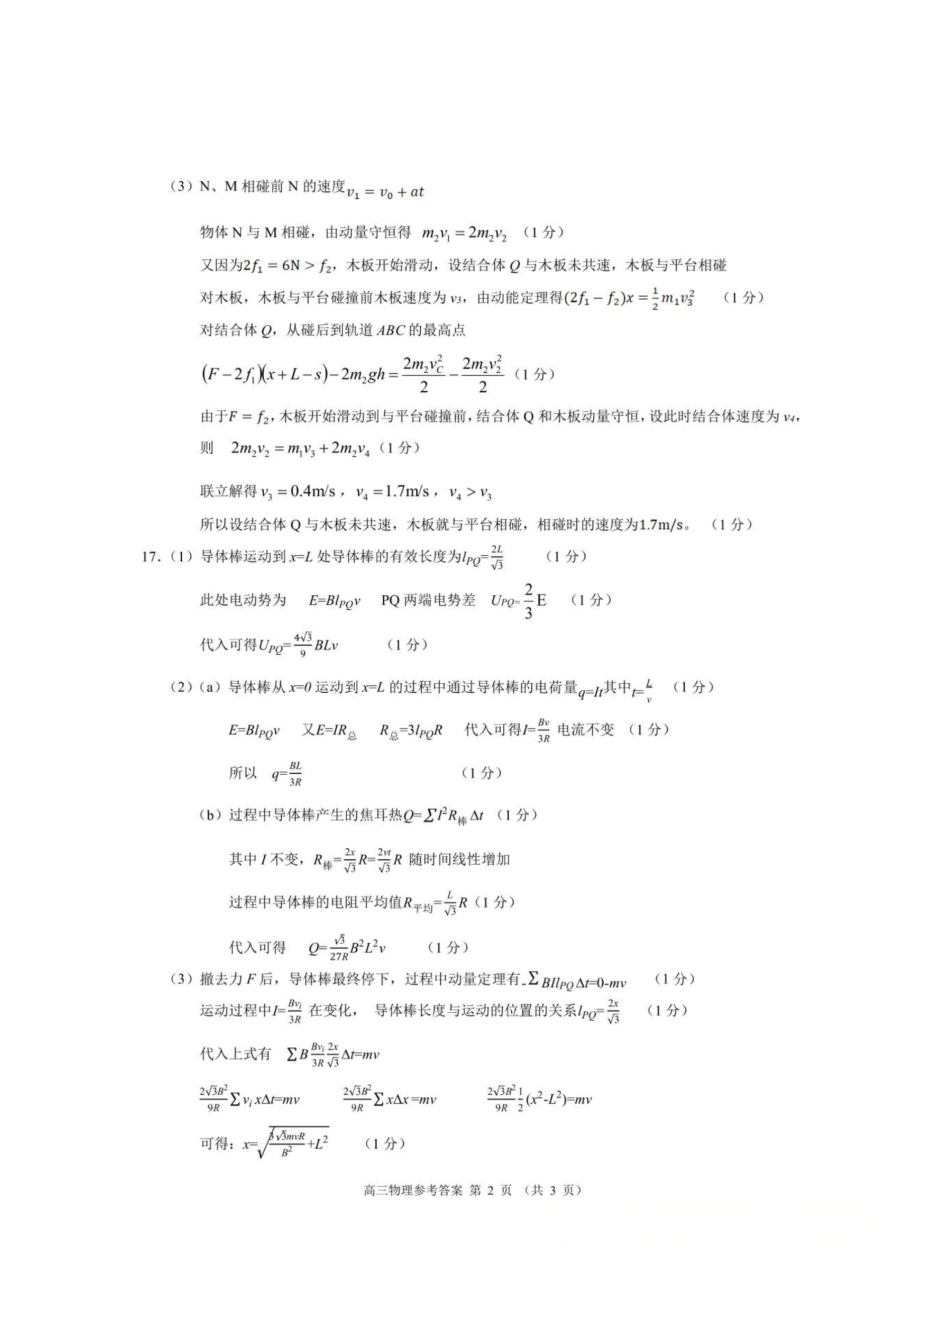 （3）N、M 相碰前 N 的速度v₁ = v₀ + at
物体 N 与 M 相碰，由动量守恒得 m₂v₁ = 2m₂v₂ （1 分）
又因为2f₁ = 6N > f₂，木板开始滑动，设结合体 Q 与木板未共速，木板与平台相碰
对木板，木板与平台碰撞前木板速度为 v₃，由动能定理得(2f₁ − f₂)x = ½m₁v₃² （1 分）
对结合体 Q，从碰后到轨道 ABC 的最高点
(F − 2f₁)(x + L − s) − 2m₂gh = 2m₂v_C²/2 − 2m₂v₂²/2 （1 分）
由于F = f₂，木板开始滑动到与平台碰撞前，结合体 Q 和木板动量守恒，设此时结合体速度为 v₄，
则 2m₂v₂ = m₁v₃ + 2m₂v₄（1 分）
联立解得 v₃ = 0.4m/s ， v₄ = 1.7m/s ， v₄ > v₃
所以设结合体 Q 与木板未共速，木板就与平台相碰，相碰时的速度为1.7m/s。 （1 分）
17.（1）导体棒运动到 x=L 处导体棒的有效长度为l_PQ=2L/√3 （1 分）
此处电动势为 E=Bl_PQv PQ 两端电势差 U_PQ=2/3 E （1 分）
代入可得U_PQ=4√3/9 BLv （1 分）
（2）（a）导体棒从 x=0 运动到 x=L 的过程中通过导体棒的电荷量q=It其中t=L/v （1 分）
E=Bl_PQv 又E=IR总 R总=3l_PQR 代入可得I=Bv/3R 电流不变 （1 分）
所以 q=BL/3R （1 分）
（b）过程中导体棒产生的焦耳热Q=∑I²R棒Δt （1 分）
其中 I 不变，R棒=2x/√3 R=2vt/√3 R 随时间线性增加
过程中导体棒的电阻平均值R平均=L/√3 R（1 分）
代入可得 Q=√3/27R B²L²v （1 分）
（3）撤去力 F 后，导体棒最终停下，过程中动量定理有-∑BIl_PQΔt=0-mv （1 分）
运动过程中I=Bvᵢ/3R 在变化， 导体棒长度与运动的位置的关系l_PQ=2x/√3 （1 分）
代入上式有 ∑B Bvᵢ/3R 2x/√3 Δt=mv
2√3B²/9R ∑vᵢxΔt=mv 2√3B²/9R ∑xΔx=mv 2√3B²/9R 1/2(x²-L²)=mv
可得：x=√(3√3mvR/B²+L²) （1 分）
高三物理参考答案 第 2 页 （共 3 页）